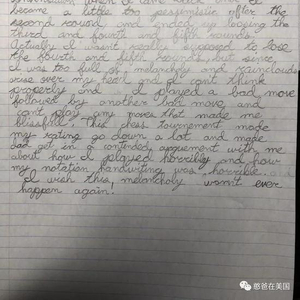 become a little too pessimistic after the
second round and ended up losing the
third and fourth and fifth rounds.
Actually I wasn't really supposed to lose
the fourth and fifth rounds, but since
I was too full of melancholy and
over my head and I can't think
properly and I played a bad move
followed by another bad move and
can't play any moves that made me
blissful. This chess tournament made
my rating go down a lot and made
dad get in a contended arguement with me
about how I played horribly and how
my notation handwriting was horrible.
I wish this melancholy won't ever
happen again!
憨爸在美国